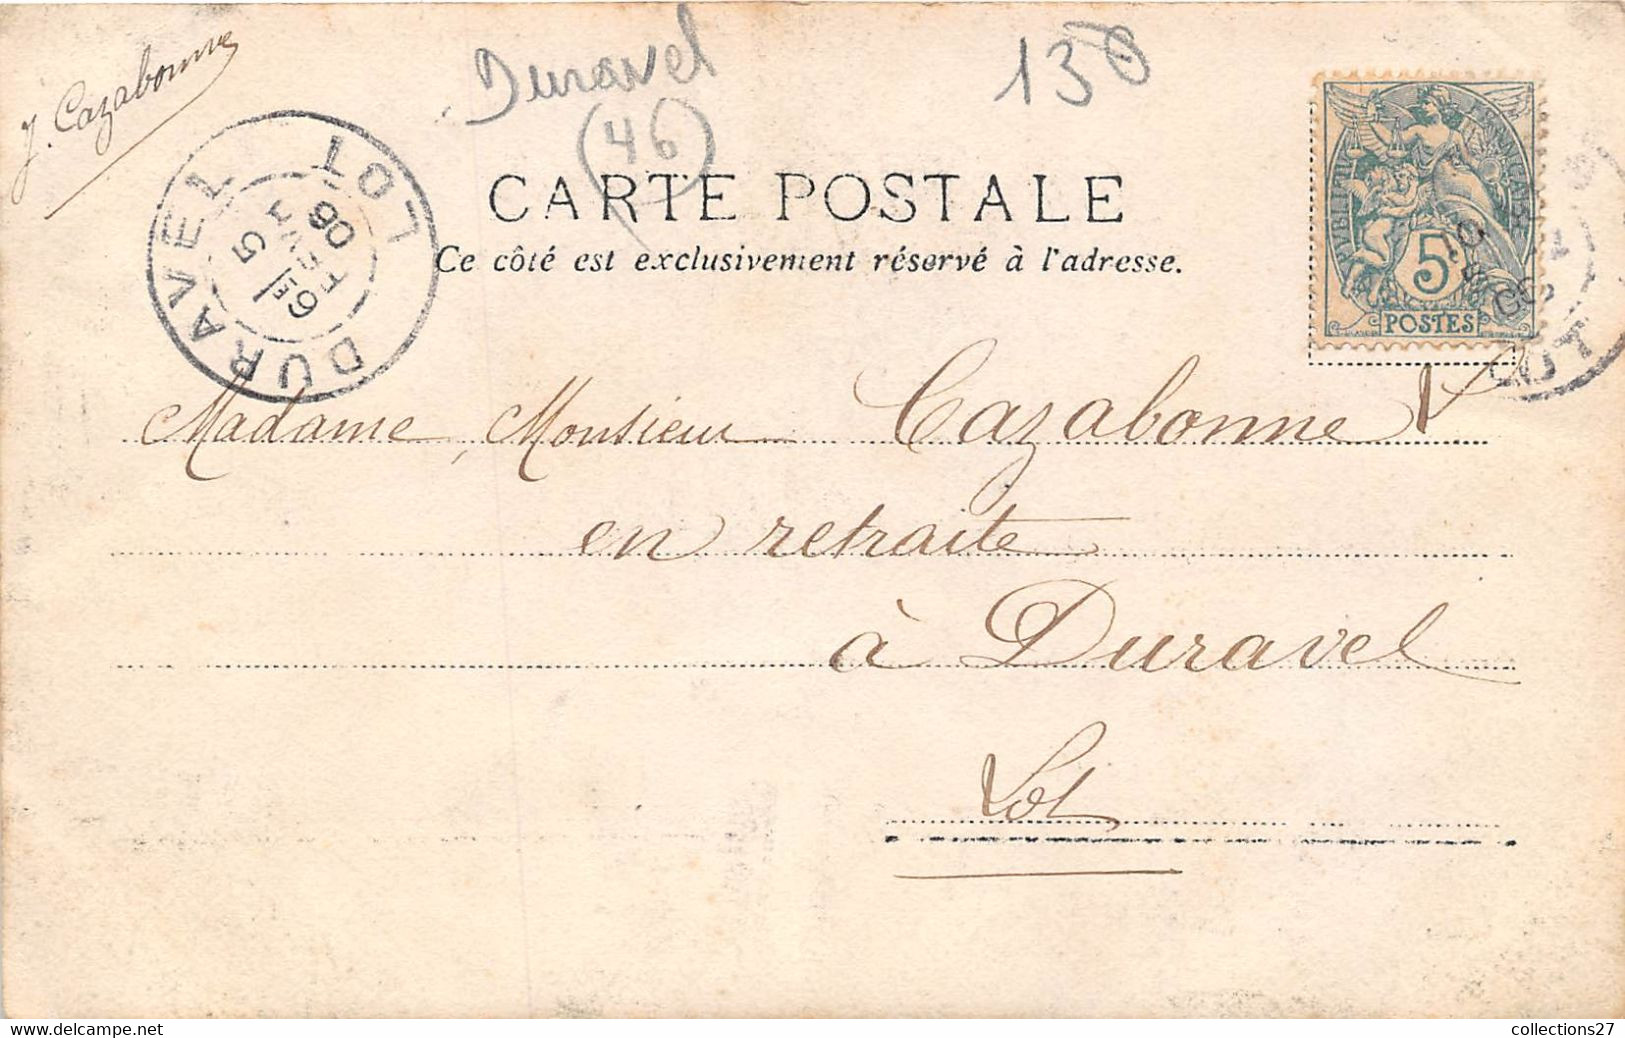 J. Cazabonne
Duravel
(46)
130
CARTE POSTALE
Ce côté est exclusivement réservé à l'adresse.
DURAVEL LOT
5
FEVR
06
RÉPUBLIQUE FRANÇAISE
5
POSTES
LOT
Madame, Monsieur Cazabonne
en retraite
à Duravel
Lot
collections27